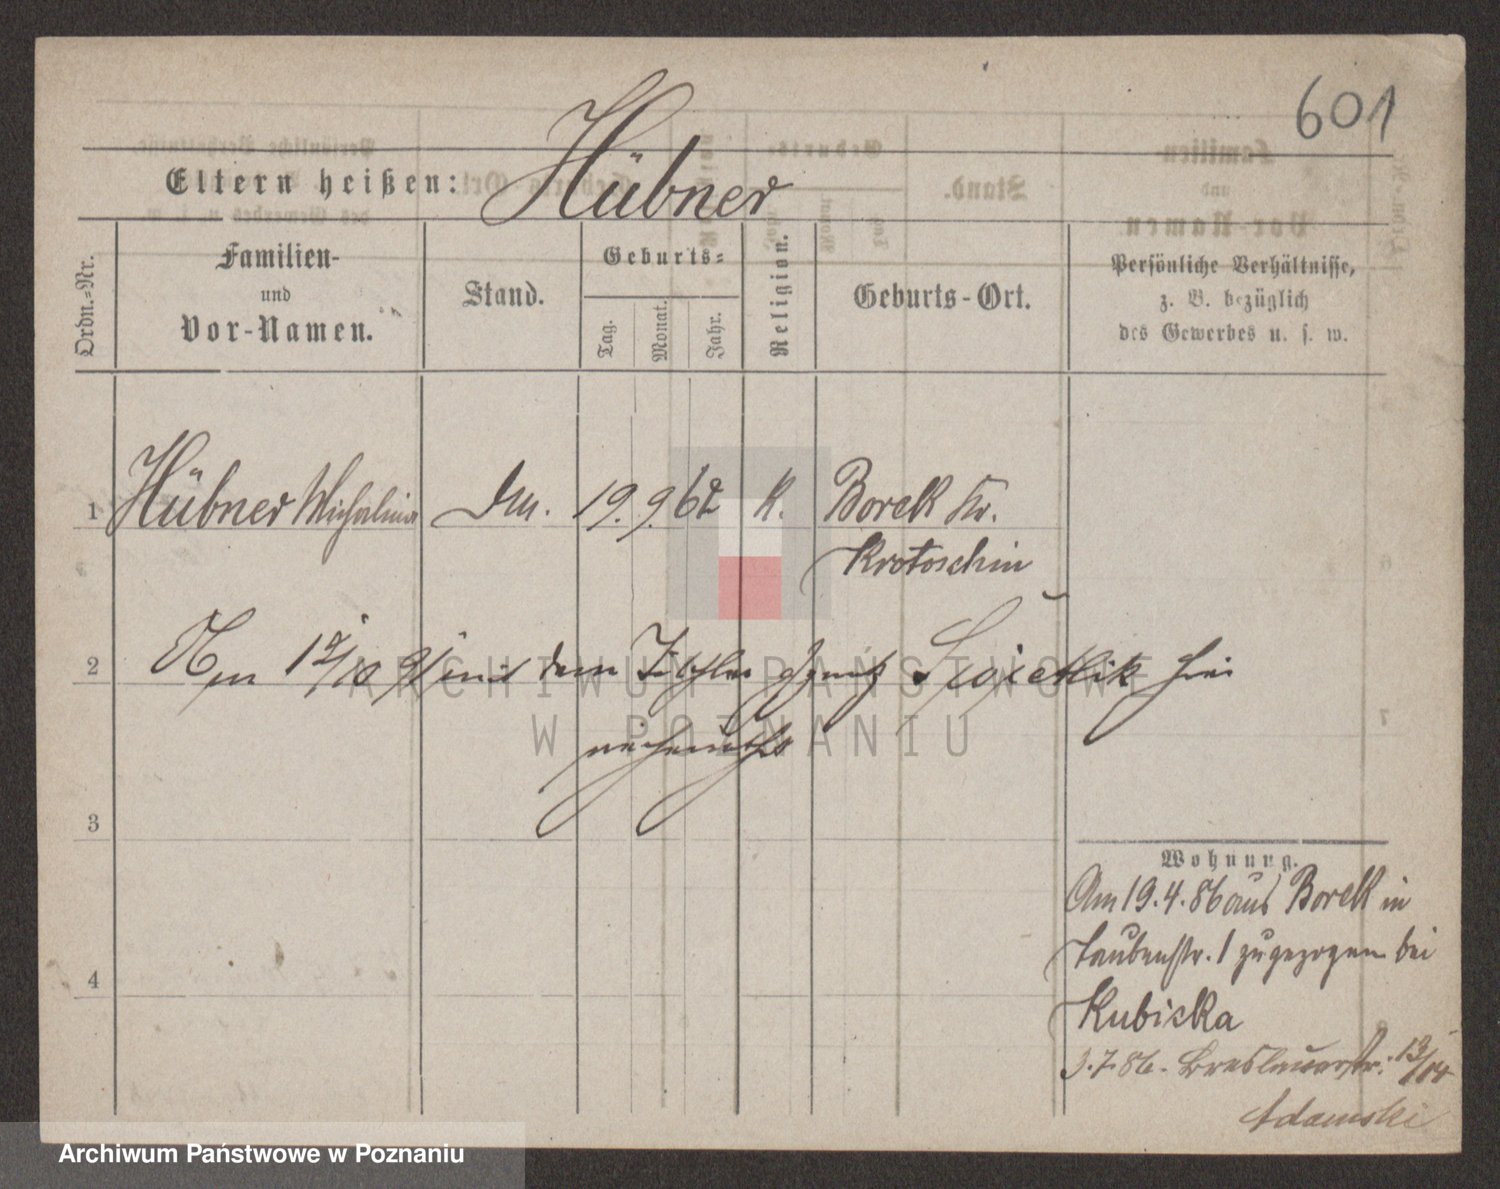 601
Eltern heißen: Hübner
Ordn.-Nr.
Familien-
und
Vor-Namen.
Stand.
Geburts-
Tag.
Monat.
Jahr.
Religion.
Geburts-Ort.
Persönliche Verhältnisse,
z. B. bezüglich
des Gewerbes u. s. w.
1 Hübner Michalina Dm. 19. 9. 62 K. Borek Kr.
Krotoschin
2 dem hier
ARCHIWUM PAŃSTWOWE
W POZNANIU
3
Wohnung.
Am 19.4.86 aus Borek in
Taubenstr. 1 zugezogen bei
4
Kubiska
3.7.86. Breslauerstr. 13/14
Adamski
Archiwum Państwowe w Poznaniu